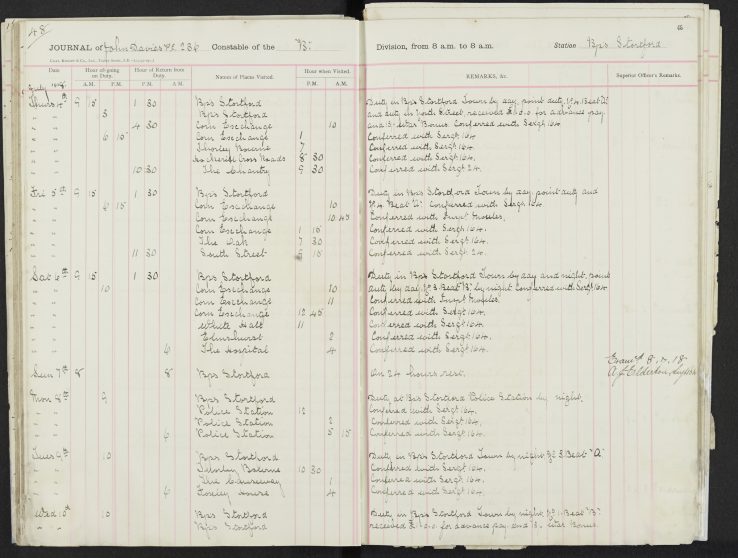 48
JOURNAL of John Davies P.C. 238 Constable of the "B"
Date Hour of going on Duty. Hour of Return from Duty. Names of Places Visited. Hour when Visited.
A.M. P.M. P.M. A.M. P.M. A.M.
July 1918
Thurs 4th 9 15 1 30 Bps Stortford
" " 3 Bps Stortford
" " 4 30 Corn Exchange 10
" " 6 15 Corn Exchange 1
" " Thorley Bourne 7
" " Hockerill Cross Roads 8 30
" " 10 30 The Chantry 9 30
Fri 5th 9 15 1 30 Bps Stortford
" " 6 15 Corn Exchange 10
" " Corn Exchange 10 45
" " Corn Exchange 1 15
" " The Oak 7 30
" " 11 30 South Street 9 15
Sat 6th 9 15 1 30 Bps Stortford
" " 10 Corn Exchange 10
" " Corn Exchange 11
" " Corn Exchange 12 45
" " White Hall 11
" " 2
" " 6 The Hospital 4
Sun 7th 8 8 Bps Stortford
Mon 8th 9 Bps Stortford
" " Police Station 12
" " Police Station 2
" " 6 Police Station 5 15
Tues 9th 10 Bps Stortford
" " Thorley Bourne 10 30
" " The Causeway 1
" " 6 House 4
Wed 10th 10 Bps Stortford
" " Bps Stortford
45
Division, from 8 a.m. to 8 a.m. Station Bps Stortford
REMARKS, &c. Superior Officer's Remarks.
Duty in Bps Stortford Town by day, point duty, No 4 Beat "A"
and duty in North Street, received £ for advance pay
and War Bonus. Conferred with Sergt 164
Conferred with Sergt 164.
Conferred with Sergt 164.
Conferred with Sergt 164.
Conferred with Sergt 24.
Duty in Bps Stortford Town by day, point duty and
No 4 Beat "A". Conferred with Sergt 164
Conferred with Inspt
Conferred with Sergt 164.
Conferred with Sergt 164.
Conferred with Sergt 24.
Duty in Bps Stortford Town by day and night, point
duty by day, No 3 Beat "B" by night Conferred with Sergt 164
Conferred with Inspt
Conferred with Sergt 164.
Conferred with Sergt 164.
Conferred with Sergt 164.
Conferred with Sergt 164.
On 24 hours rest.
Examd 8.7.18
Duty at Bps Stortford Police Station by night.
Conferred with Sergt 164.
Conferred with Sergt 164.
Conferred with Sergt 164.
Duty in Bps Stortford Town by night No 3 Beat "A"
Conferred with Sergt 164.
Conferred with Sergt 164.
Conferred with Sergt 164.
Duty in Bps Stortford Town by night, No 1 Beat "B"
received £ for advance pay and War Bonus.